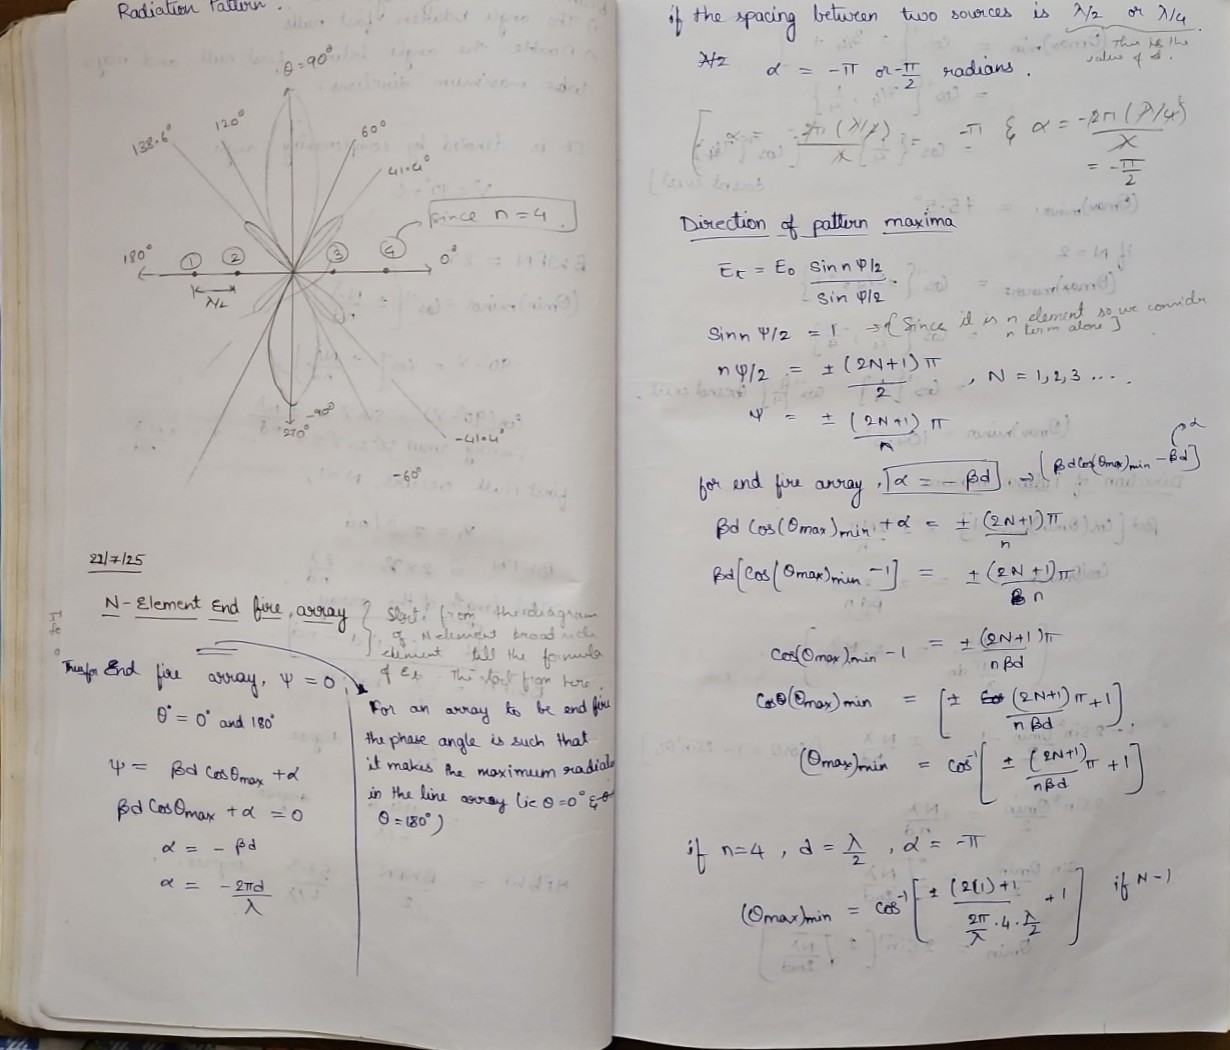 Radiation Pattern.
θ = 90°
120°
138.6°
60°
41.4°
since n = 4.
180°
① ② ③ ④
0°
λ/2
-90°
270°
-41.4°
-60°
22/7/25
N-Element End fire array { Start from the diagram
of N element broad side
element till the formula
of Et. The start from here.
End fire array, Ψ = 0,
θ° = 0° and 180°
Ψ = βd cosθmax + α
βd cosθmax + α = 0
α = - βd
α = -2πd/λ
For an array to be end fire
the phase angle is such that
it makes the maximum
in the line array (ie θ = 0° &
θ = 180°)
if the spacing between two sources is λ/2 or λ/4
This is the
value of d.
λ/2 α = -π or -π/2 radians.
[α = -2π(λ/2)/λ = -π & α = -2π(λ/4)/λ
= -π/2
Direction of pattern maxima
Et = E0 sin nΨ/2 / sin Ψ/2.
Sin n Ψ/2 = 1 → [Since it is n element so we consider
n term alone]
nΨ/2 = ± (2N+1)π/2, N = 1,2,3 ....
Ψ = ± (2N+1)π/n
α
for end fire array, α = - βd → [βd cos(θmax)min - βd]
βd cos(θmax)min + α = ± (2N+1)π/n
βd[cos(θmax)min - 1] = ± (2N+1)π/n
cos(θmax)min - 1 = ± (2N+1)π/nβd
cos(θmax)min = [± (2N+1)π/nβd + 1].
(θmax)min = cos⁻¹[± (2N+1)π/nβd + 1]
if n=4, d = λ/2, α = -π
(θmax)min = cos⁻¹[± (2(1)+1/2π/λ·4·λ/2 + 1] if N-1